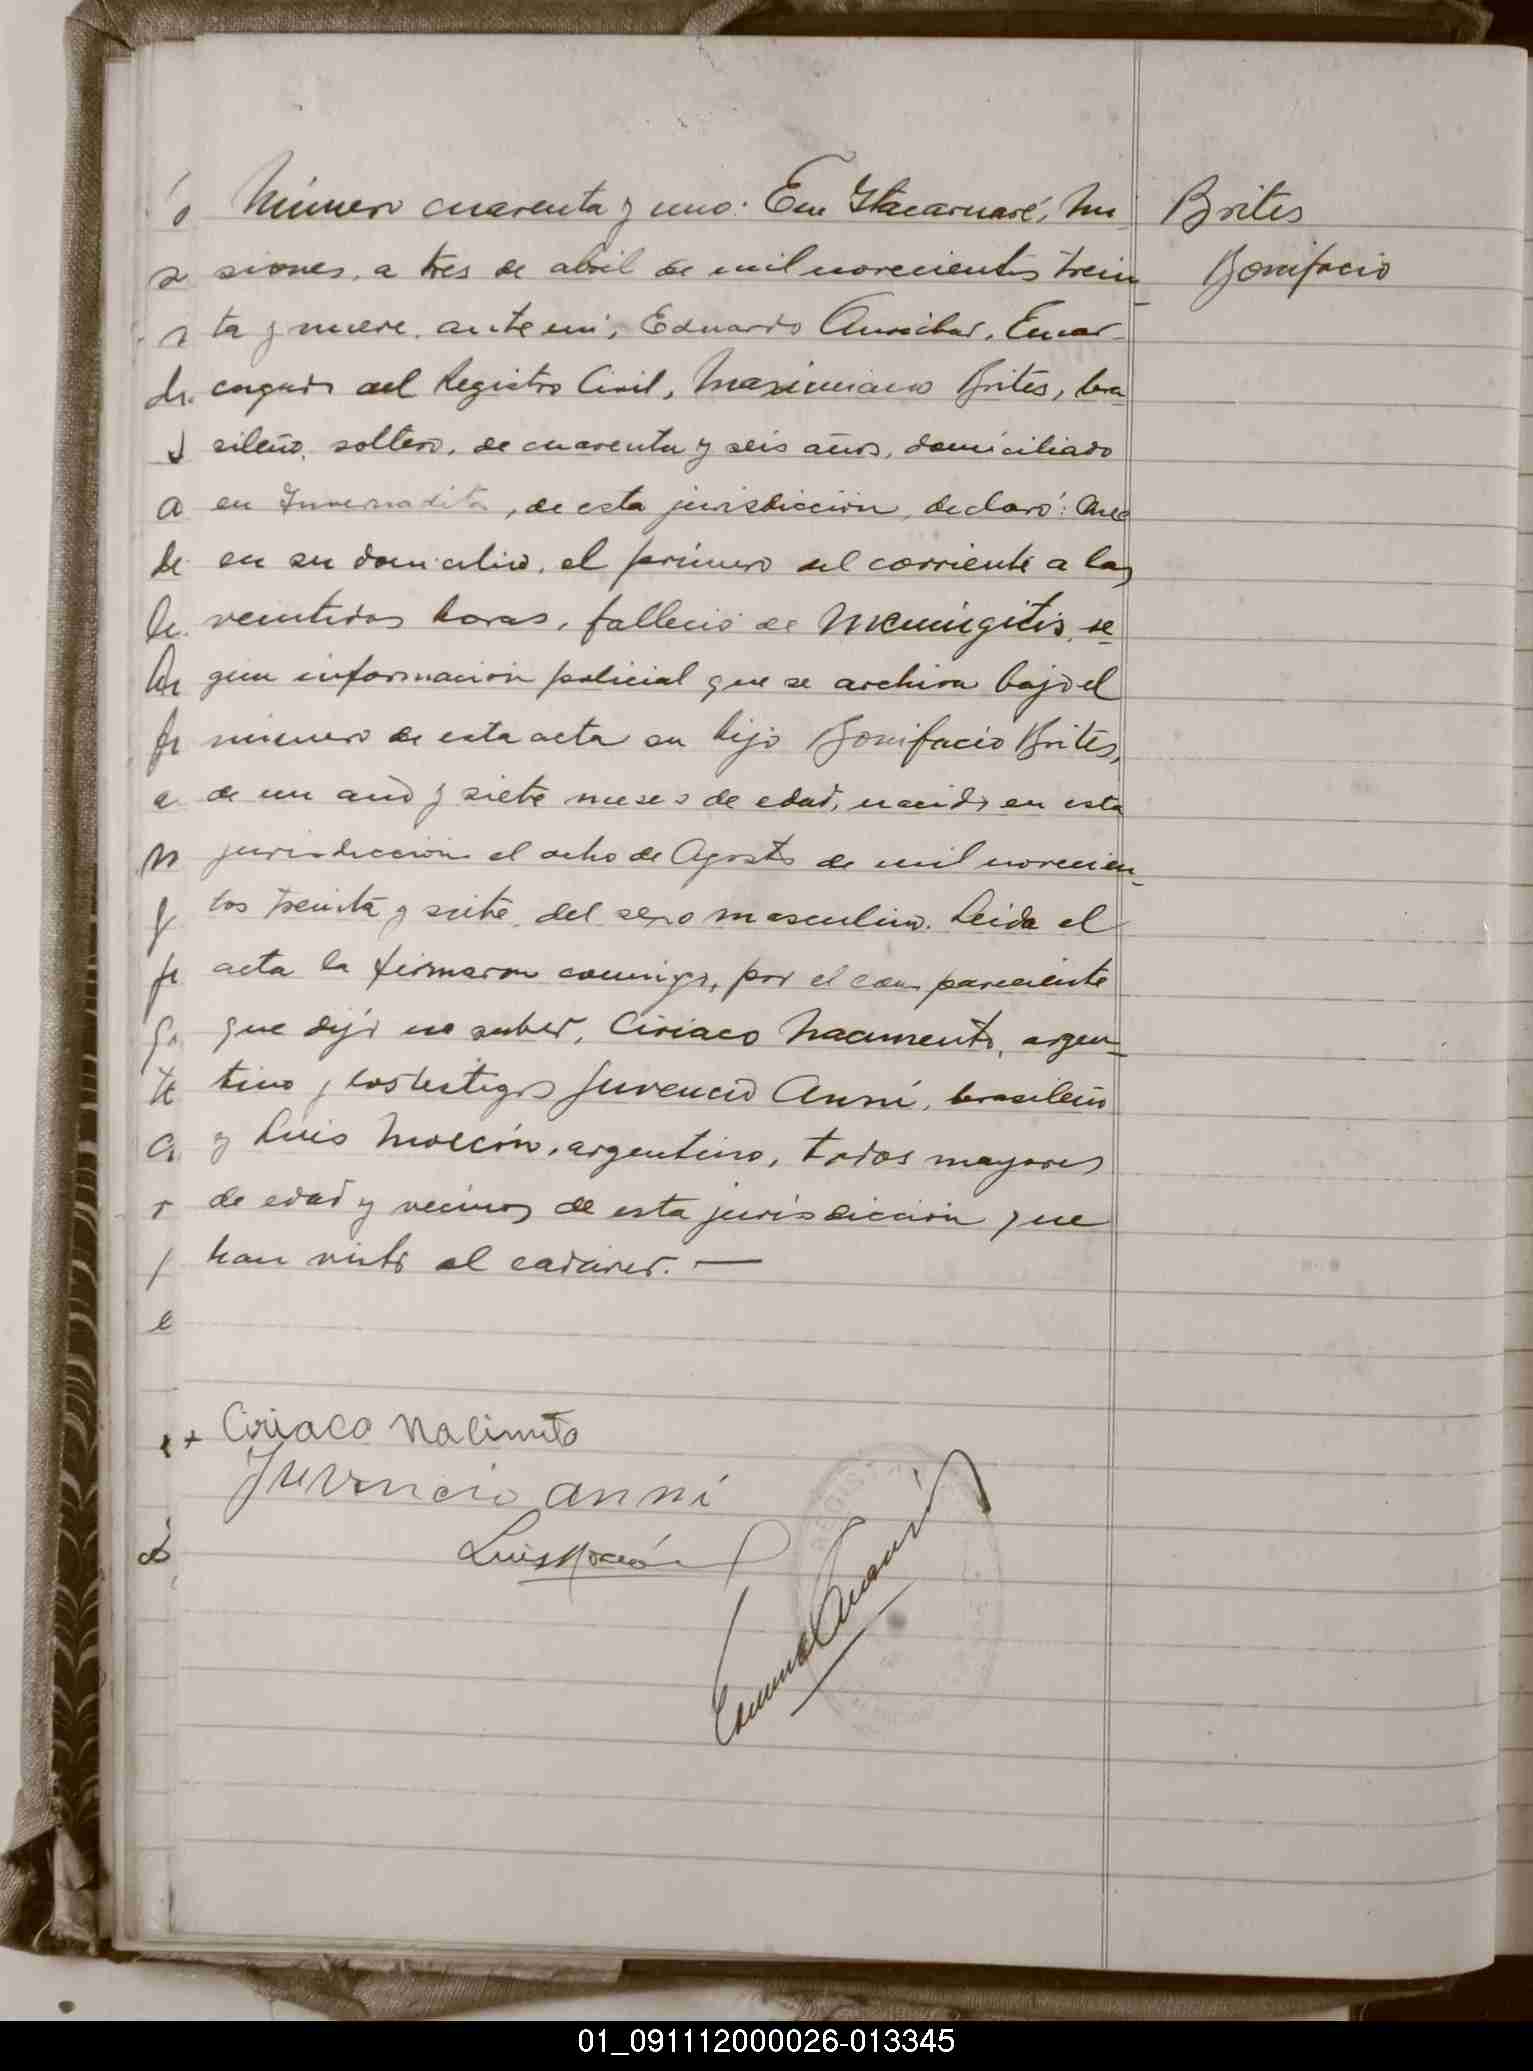 Número cuarenta y uno. En Itacaruaré, Mi-
siones, a tres de abril de mil novecientos trein-
ta y nueve, ante mi, Eduardo Encar-
cargado del Registro Civil, Maximiano Brites, bra-
sileño, soltero, de cuarenta y seis años, domiciliado
en Invernadita, de esta jurisdicción, declaró: Que
en su domicilio, el primero del corriente a las
veintidos horas, falleció de Meningitis, se-
gún información policial que se archiva bajo el
número de esta acta su hijo Bonifacio Brites,
de un año y siete meses de edad, nacido en esta
jurisdicción el ocho de Agosto de mil novecien-
tos treinta y siete, del sexo masculino. Leida el
acta la firmaron conmigo, por el compareciente
que dijo no saber, Ciriaco Nacimento, argen-
tino y los testigos Juvencio Anni, brasileño
y Luis Morcón, argentino, todos mayores
de edad y vecinos de esta jurisdicción que
han visto el cadáver. —
Brites
Bonifacio
Ciriaco Nacimeto
Juvencio anni
Luis
01_091112000026-013345